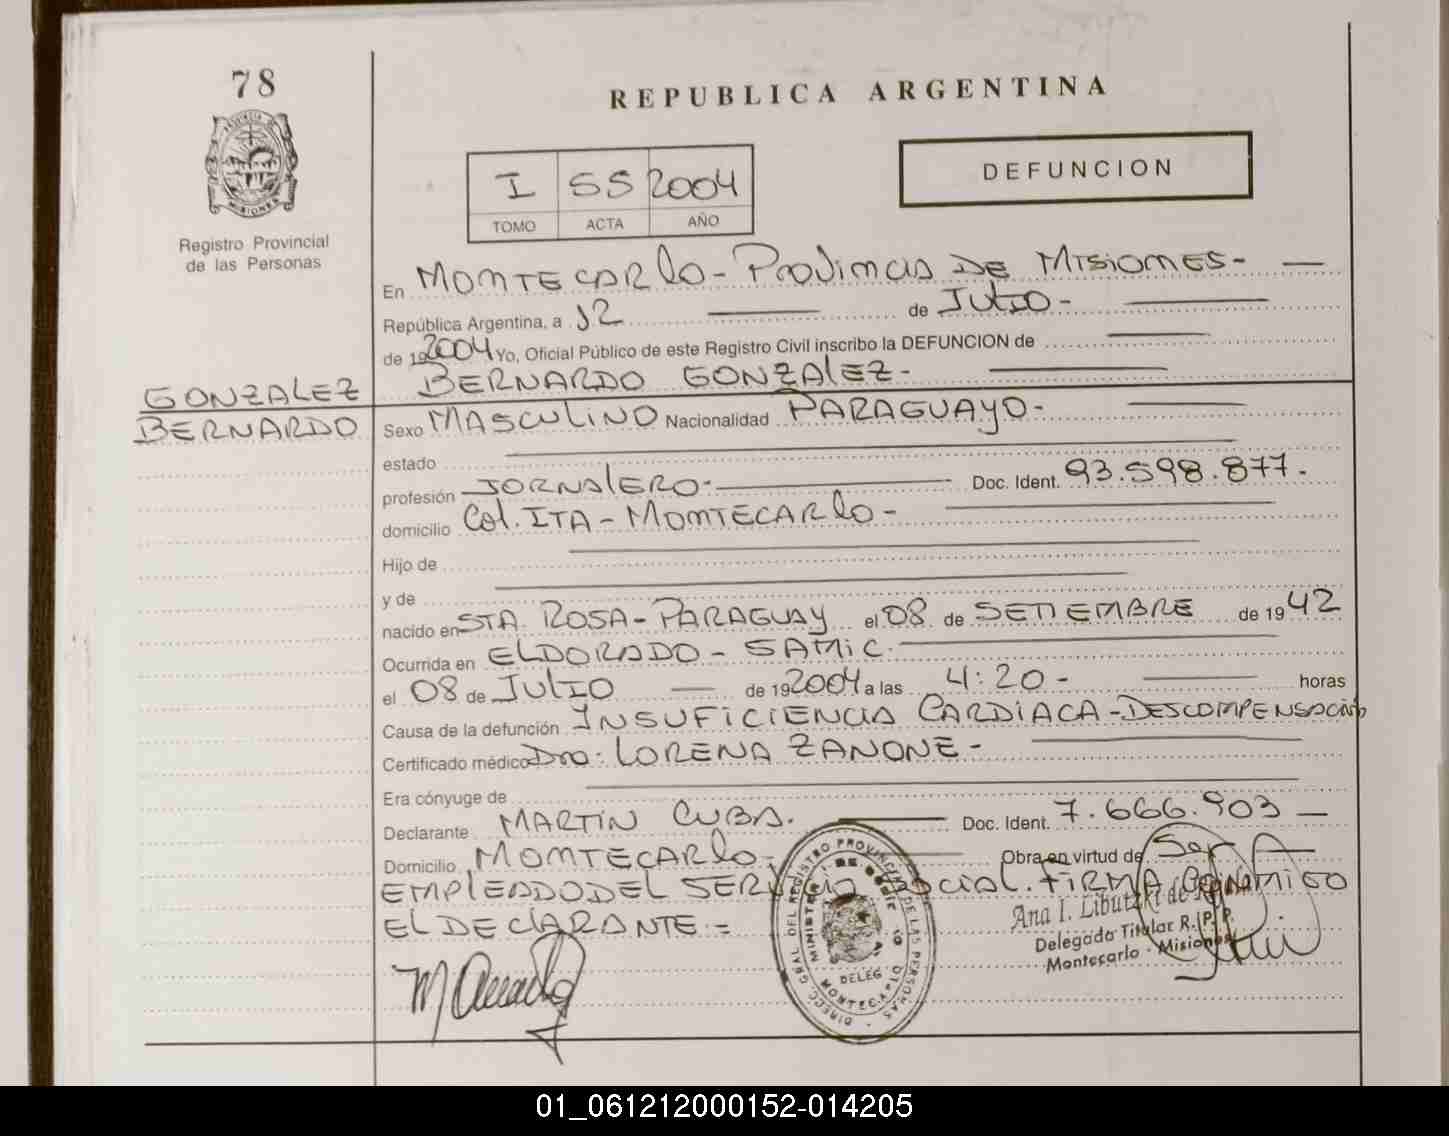 78
REPUBLICA ARGENTINA
I 55 2004
TOMO ACTA AÑO
DEFUNCION
PROVINCIA DE
MISIONES
Registro Provincial
de las Personas
En MONTECARLO - PROVINCIA DE MISIONES -
República Argentina, a 12 de JULIO -
de 192004 Yo, Oficial Público de este Registro Civil inscribo la DEFUNCION de
BERNARDO GONZALEZ -
GONZALEZ
BERNARDO
Sexo MASCULINO Nacionalidad PARAGUAYO -
estado
profesión JORNALERO - Doc. Ident. 93.598.877.
domicilio Col. ITA - MONTECARLO -
Hijo de
y de
nacido en STA. ROSA - PARAGUAY el 08 de SETIEMBRE de 1942
Ocurrida en ELDORADO - SAMIC.
el 08 de JULIO de 192004 a las 4:20 - horas
Causa de la defunción INSUFICIENCIA CARDIACA - DESCOMPENSACION
Certificado médico Dra. LORENA ZANONE -
Era cónyuge de
Declarante MARTIN CUBA. Doc. Ident. 7.666.903
Domicilio MONTECARLO - Obra en virtud de Ser
EMPLEADO DEL SERVICIO SOCIAL. FIRMA CONMIGO
EL DECLARANTE =
Ana I. Libutzki de
Delegada Titular R. P. P.
Montecarlo - Misiones
DIREC. GRAL DEL REGISTRO PROVINCIAL DE LAS PERSONAS
DELEG
MONTECARLO
01_061212000152-014205